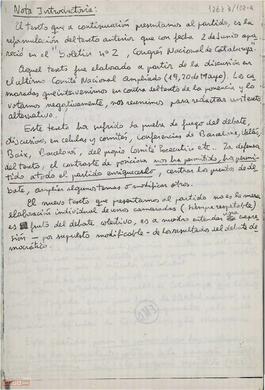 Nota Introductoria:
El texto que a continuación presentamos al partido, es la
reformulación del texto anterior que con fecha 2 de Junio apa-
reció en el "boletín nº 2, Congrés Nacional de Catalunya"
Aquel texto fue elaborado a partir de la discusión en
el último Comité Nacional ampliado (19, 20 de Mayo). Los ca-
maradas que intervenimos en contra del texto de la ponencia y lo
votamos negativamente, nos reunimos para redactar un texto
alternativo.
Este texto ha sufrido la prueba de fuego del debate,
discusiones en células y comités, conferencias de Barcelona, Vallès,
Baix, Barcelonès, del propio Comité Executivo etc. La defensa
del texto, el contraste de posiciones nos ha permitido, ha permi-
tido a todo el partido enriquecerlo, centrar los puntos de de-
bate, ampliar algunos temas o modificar otros.
El nuevo texto que presentamos al partido no es la mera
elaboración individual de unos camaradas (siempre respetable)
es fruto del debate colectivo, es a nuestro entender una expre-
sión — por supuesto modificable — de los resultados del debate de-
mocrático.